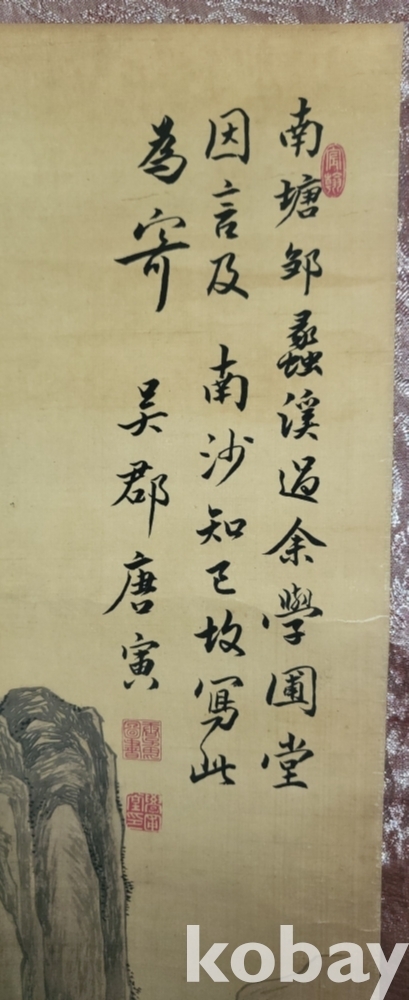 南塘鄒蠡溪過余學圃堂
因言及 南沙知己故寫此
為寄 吴郡唐寅
kobay